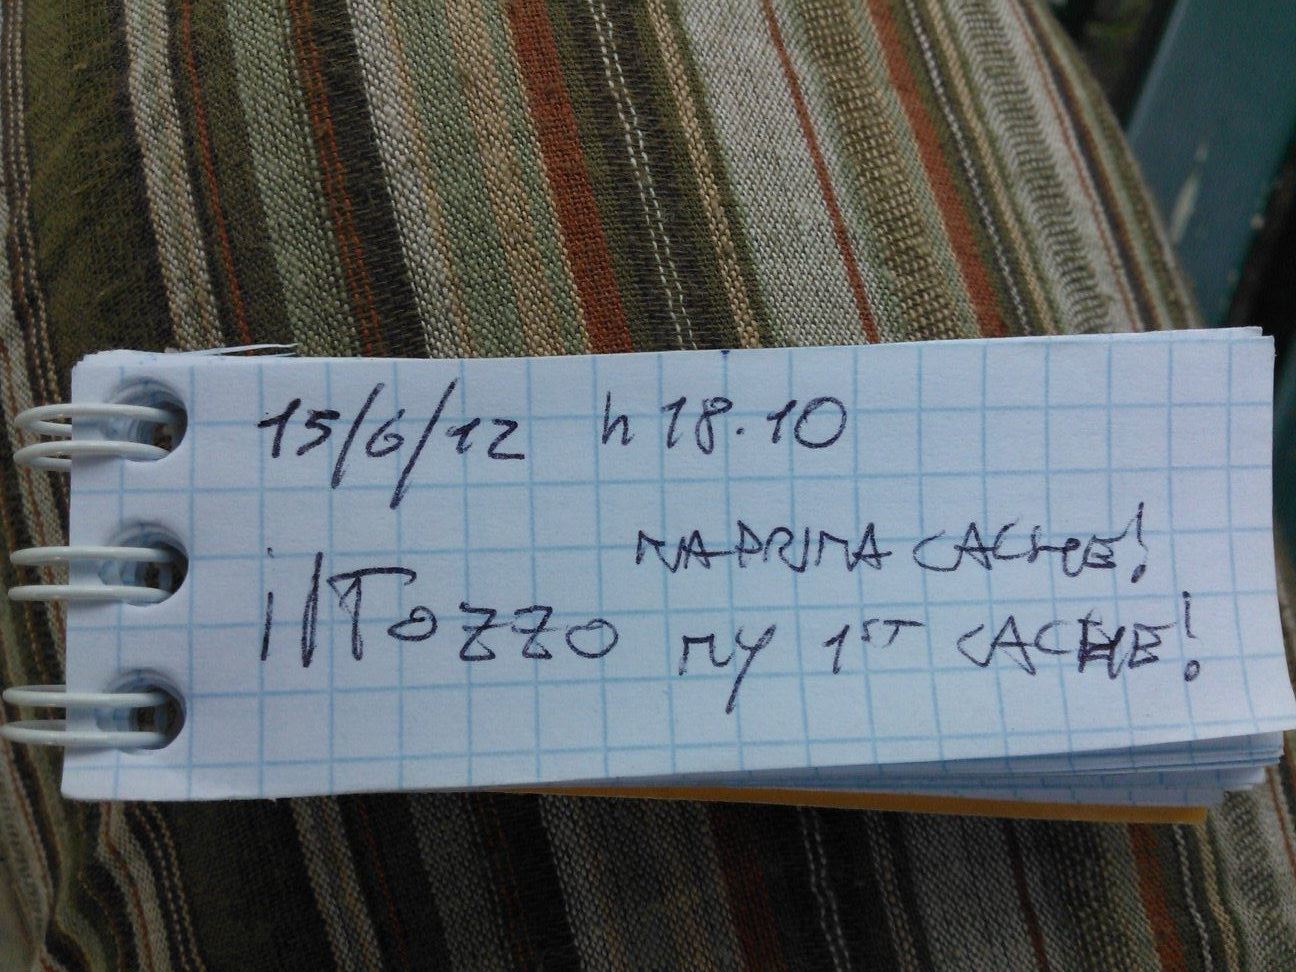 15/6/12 h 18.10
MA PRIMA CACHE!
ilTozzo MY 1ST CACHE!